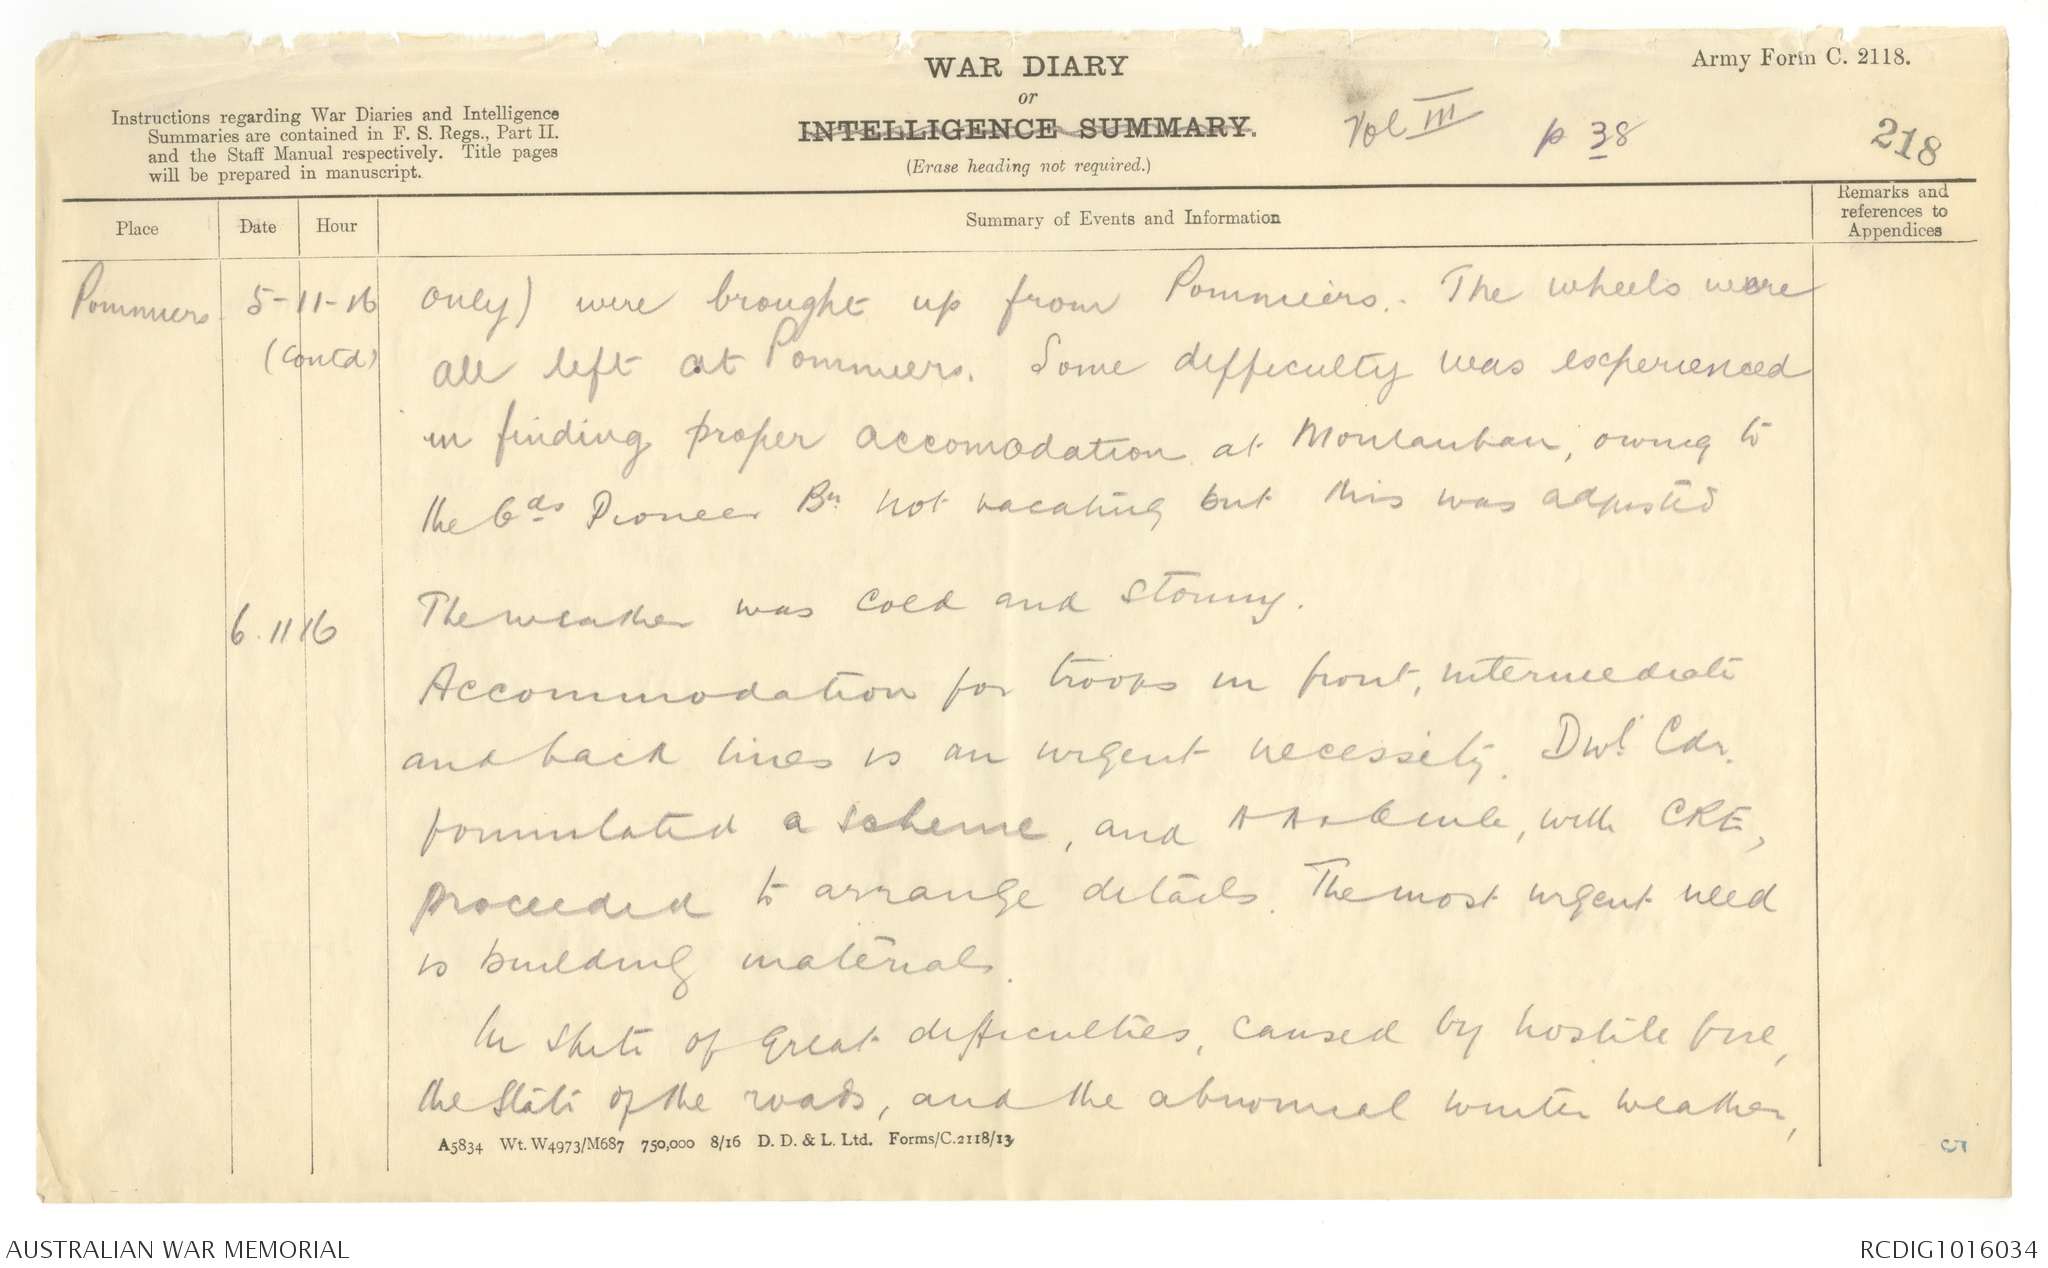 WAR DIARY
or
INTELLIGENCE SUMMARY.
(Erase heading not required.)
Army Form C. 2118.
Instructions regarding War Diaries and Intelligence
Summaries are contained in F. S. Regs., Part II.
and the Staff Manual respectively. Title pages
will be prepared in manuscript.
Vol III p 38
218
Place
Date
Hour
Summary of Events and Information
Remarks and
references to
Appendices
Pommiers 5-11-16 only) were brought up from Pommiers. The wheels were
(Contd) all left at Pommiers. Some difficulty was experienced
in finding proper accomodation at Montauban, owing to
the Gds Pioneer Bn not vacating but this was adjusted
6.11 16 The weather was cold and stormy.
Accommodation for troops in front, intermediate
and back lines is an urgent necessity. Divl Cdr.
formulated a scheme, and with CRE,
proceeded to arrange details. The most urgent need
is building materials.
In spite of great difficulties, caused by hostile fire,
the state of the roads, and the abnormal winter weather,
A5834 Wt. W4973/M687 750,000 8/16 D. D. & L. Ltd. Forms/C.2118/13
5
AUSTRALIAN WAR MEMORIAL
RCDIG1016034